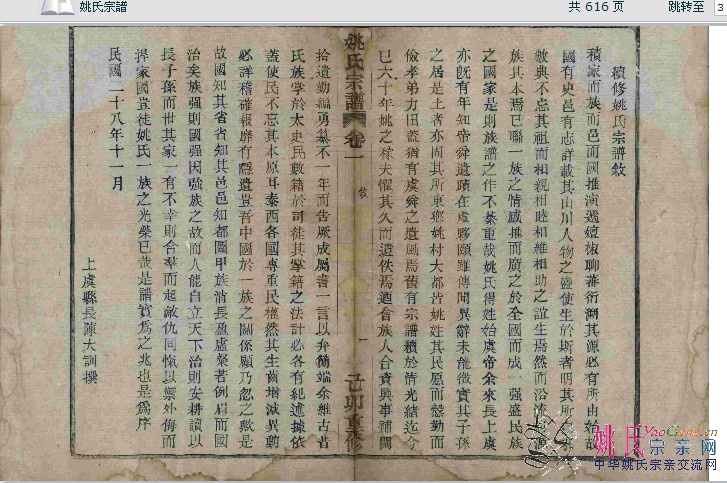 姚氏宗譜
共 616 页
跳转至
3
續修姚氏宗譜敘
積家而族而邑而國推演遞嬗椒聊蕃衍溯其源必有所由始故
國有史邑有志詳載其山川人物之
使生於斯者明其所
敦典不忘其祖而相親相睦相維相助之誼生焉然而沿流
族其本焉已聯一族之情感推而廣之於全國而成一强盛民族
之國家是則族譜之作不綦重哉姚氏得姓始虞帝余來長上虞
亦旣有年知帝舜遺蹟在虞夥頤雖傳聞異辭未能徵實其子孫
之居是土者亦固其所東鄉姚村大都皆姚姓其民愿而愨勤而
儉孝弟力田藹猶有虞舜之遺風焉舊有宗譜積於淸光緖迄今
已六十年姚之林夫懼其久而遺佚焉迺會族人合資興事補闕
姚氏宗譜
卷一
敘
一
己卯重修
拾遺勤編勇纂不一年而告厥成屬書一言以弁簡端余維古昔
氏族掌於太史民數籍於司徒其掌籍之法計必各有紀述據依
蓋使民不忘其本原耳泰西各國專重民權然其生齒增減異動
必詳稽確報靡有隱遺豈吾中國於一族之關係顧乃忽之歟是
故國知其省省知其邑邑知都圖甲族淸長盈虛粲若列眉而國
治矣族强則國强因强族之故而人能自立天下治則安耕讀以
長子孫而世其家一有不幸則合羣而起敵仇同愾以禦外侮而
捍家國豈徒姚氏一族之光榮已哉是譜實爲之兆也是爲序
民國二十八年十一月
上虞縣長陳大訓撰
姚氏
YaoGens.cn
宗亲网
中华姚氏宗亲交流网